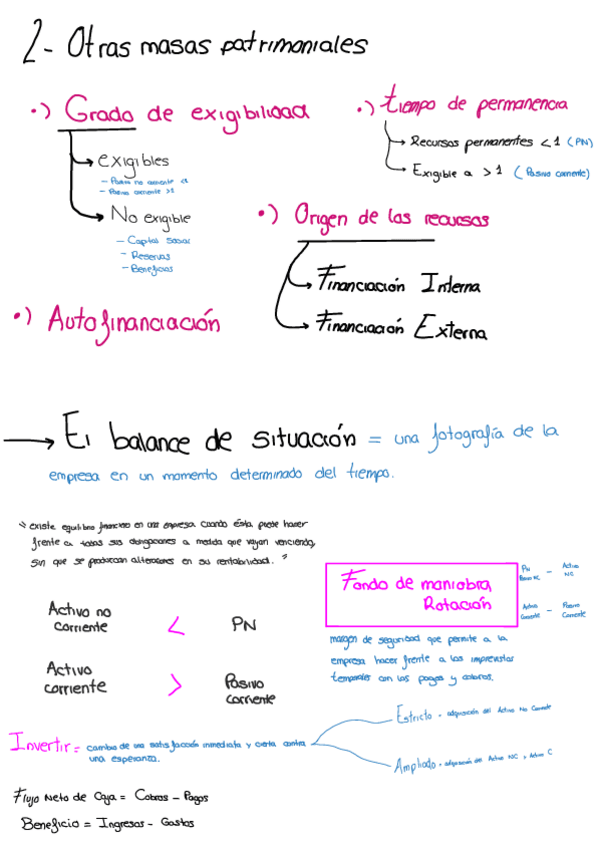 2- Otras masas patrimoniales
•) Grado de exigibilidad
exigibles
- Pasivo no corriente <1
- Pasivo corriente >1
No exigible
- Capital social
- Reservas
- Beneficios
•) tiempo de permanencia
Recursos permanentes < 1 (PN)
Exigible a > 1 (Pasivo corriente)
•) Origen de las recursos
Financiación Interna
Financiación Externa
•) Autofinanciación
El balance de situación = una fotografía de la
empresa en un momento determinado del tiempo.
"existe equilibrio financiero en una empresa cuando ésta puede hacer
frente a todas sus obligaciones a medida que vayan venciendo,
sin que se produzcan alteraciones en su rentabilidad."
Activo no corriente < PN
Activo corriente > Pasivo corriente
Fondo de maniobra
Rotación
PN
Pasivo NC - Activo NC
Activo Corriente - Pasivo Corriente
margen de seguridad que permite a la
empresa hacer frente a los imprevistos
temporales con los pagos y cobros.
Invertir = cambio de una satisfacción inmediata y cierta contra
una esperanza.
Estricto - adquisición del Activo No Corriente
Ampliado - adquisición de Activo NC y Activo C
Flujo Neto de Caja = Cobros - Pagos
Beneficio = Ingresos - Gastos